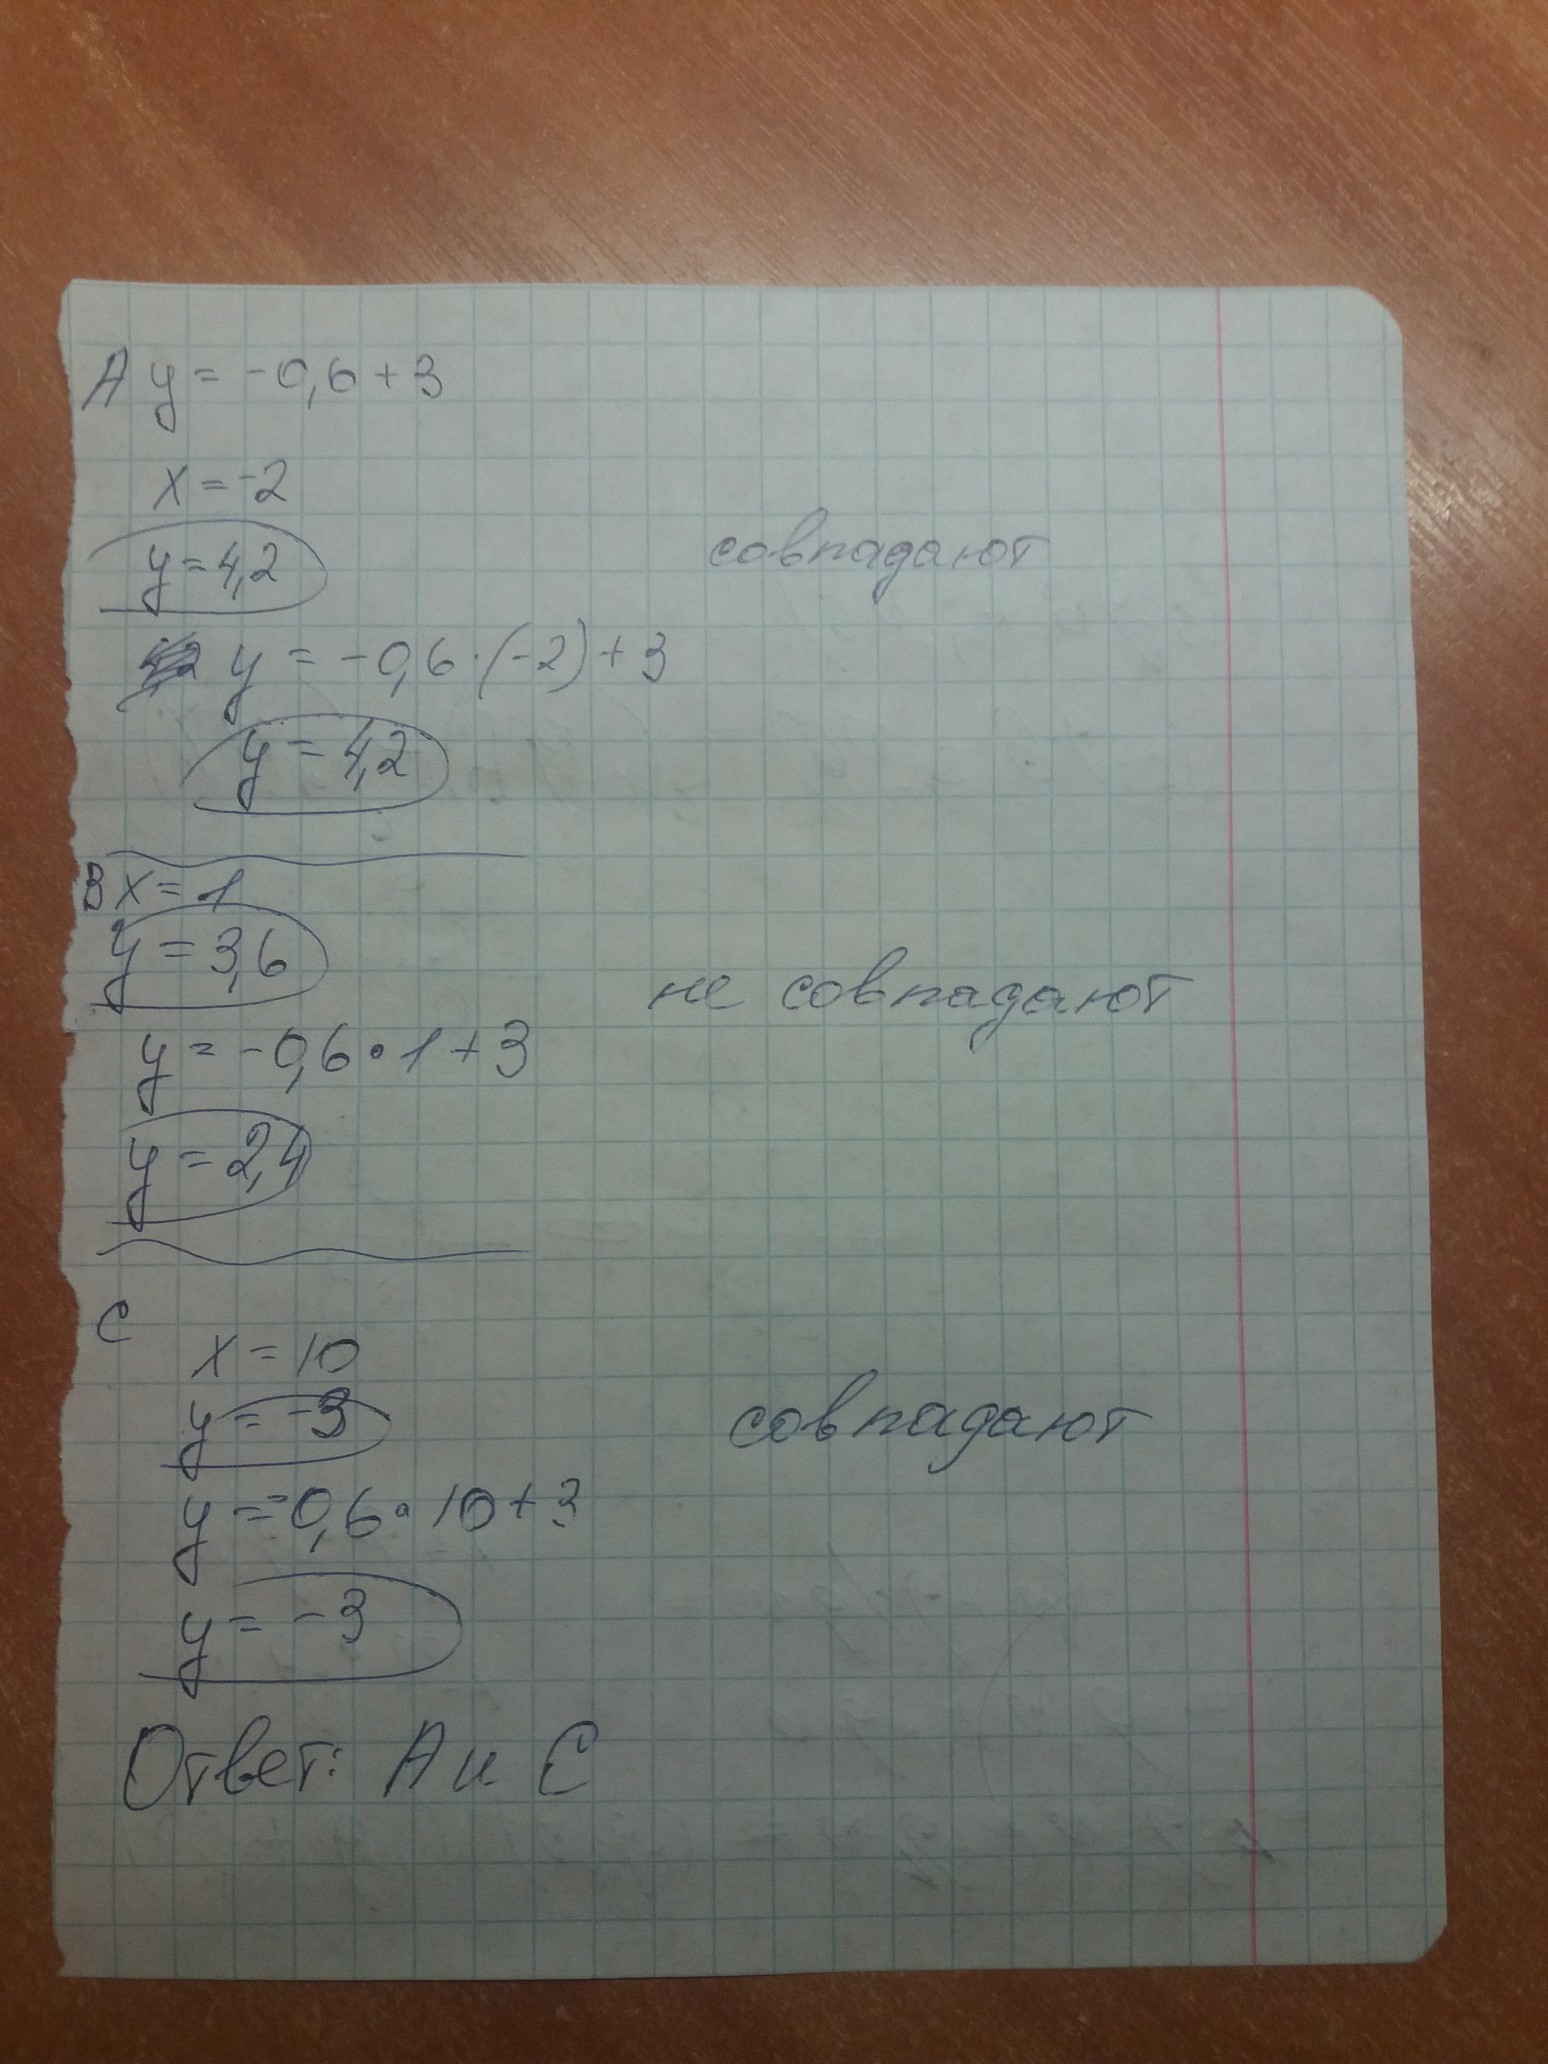 A y = -0,6 + 3
x = -2
y = 4,2
совпадают
y = -0,6 · (-2) + 3
y = 4,2
B x = 1
y = 3,6
не совпадают
y = -0,6 · 1 + 3
y = 2,4
C
x = 10
y = -3
совпадают
y = -0,6 · 10 + 3
y = -3
Ответ: A и C